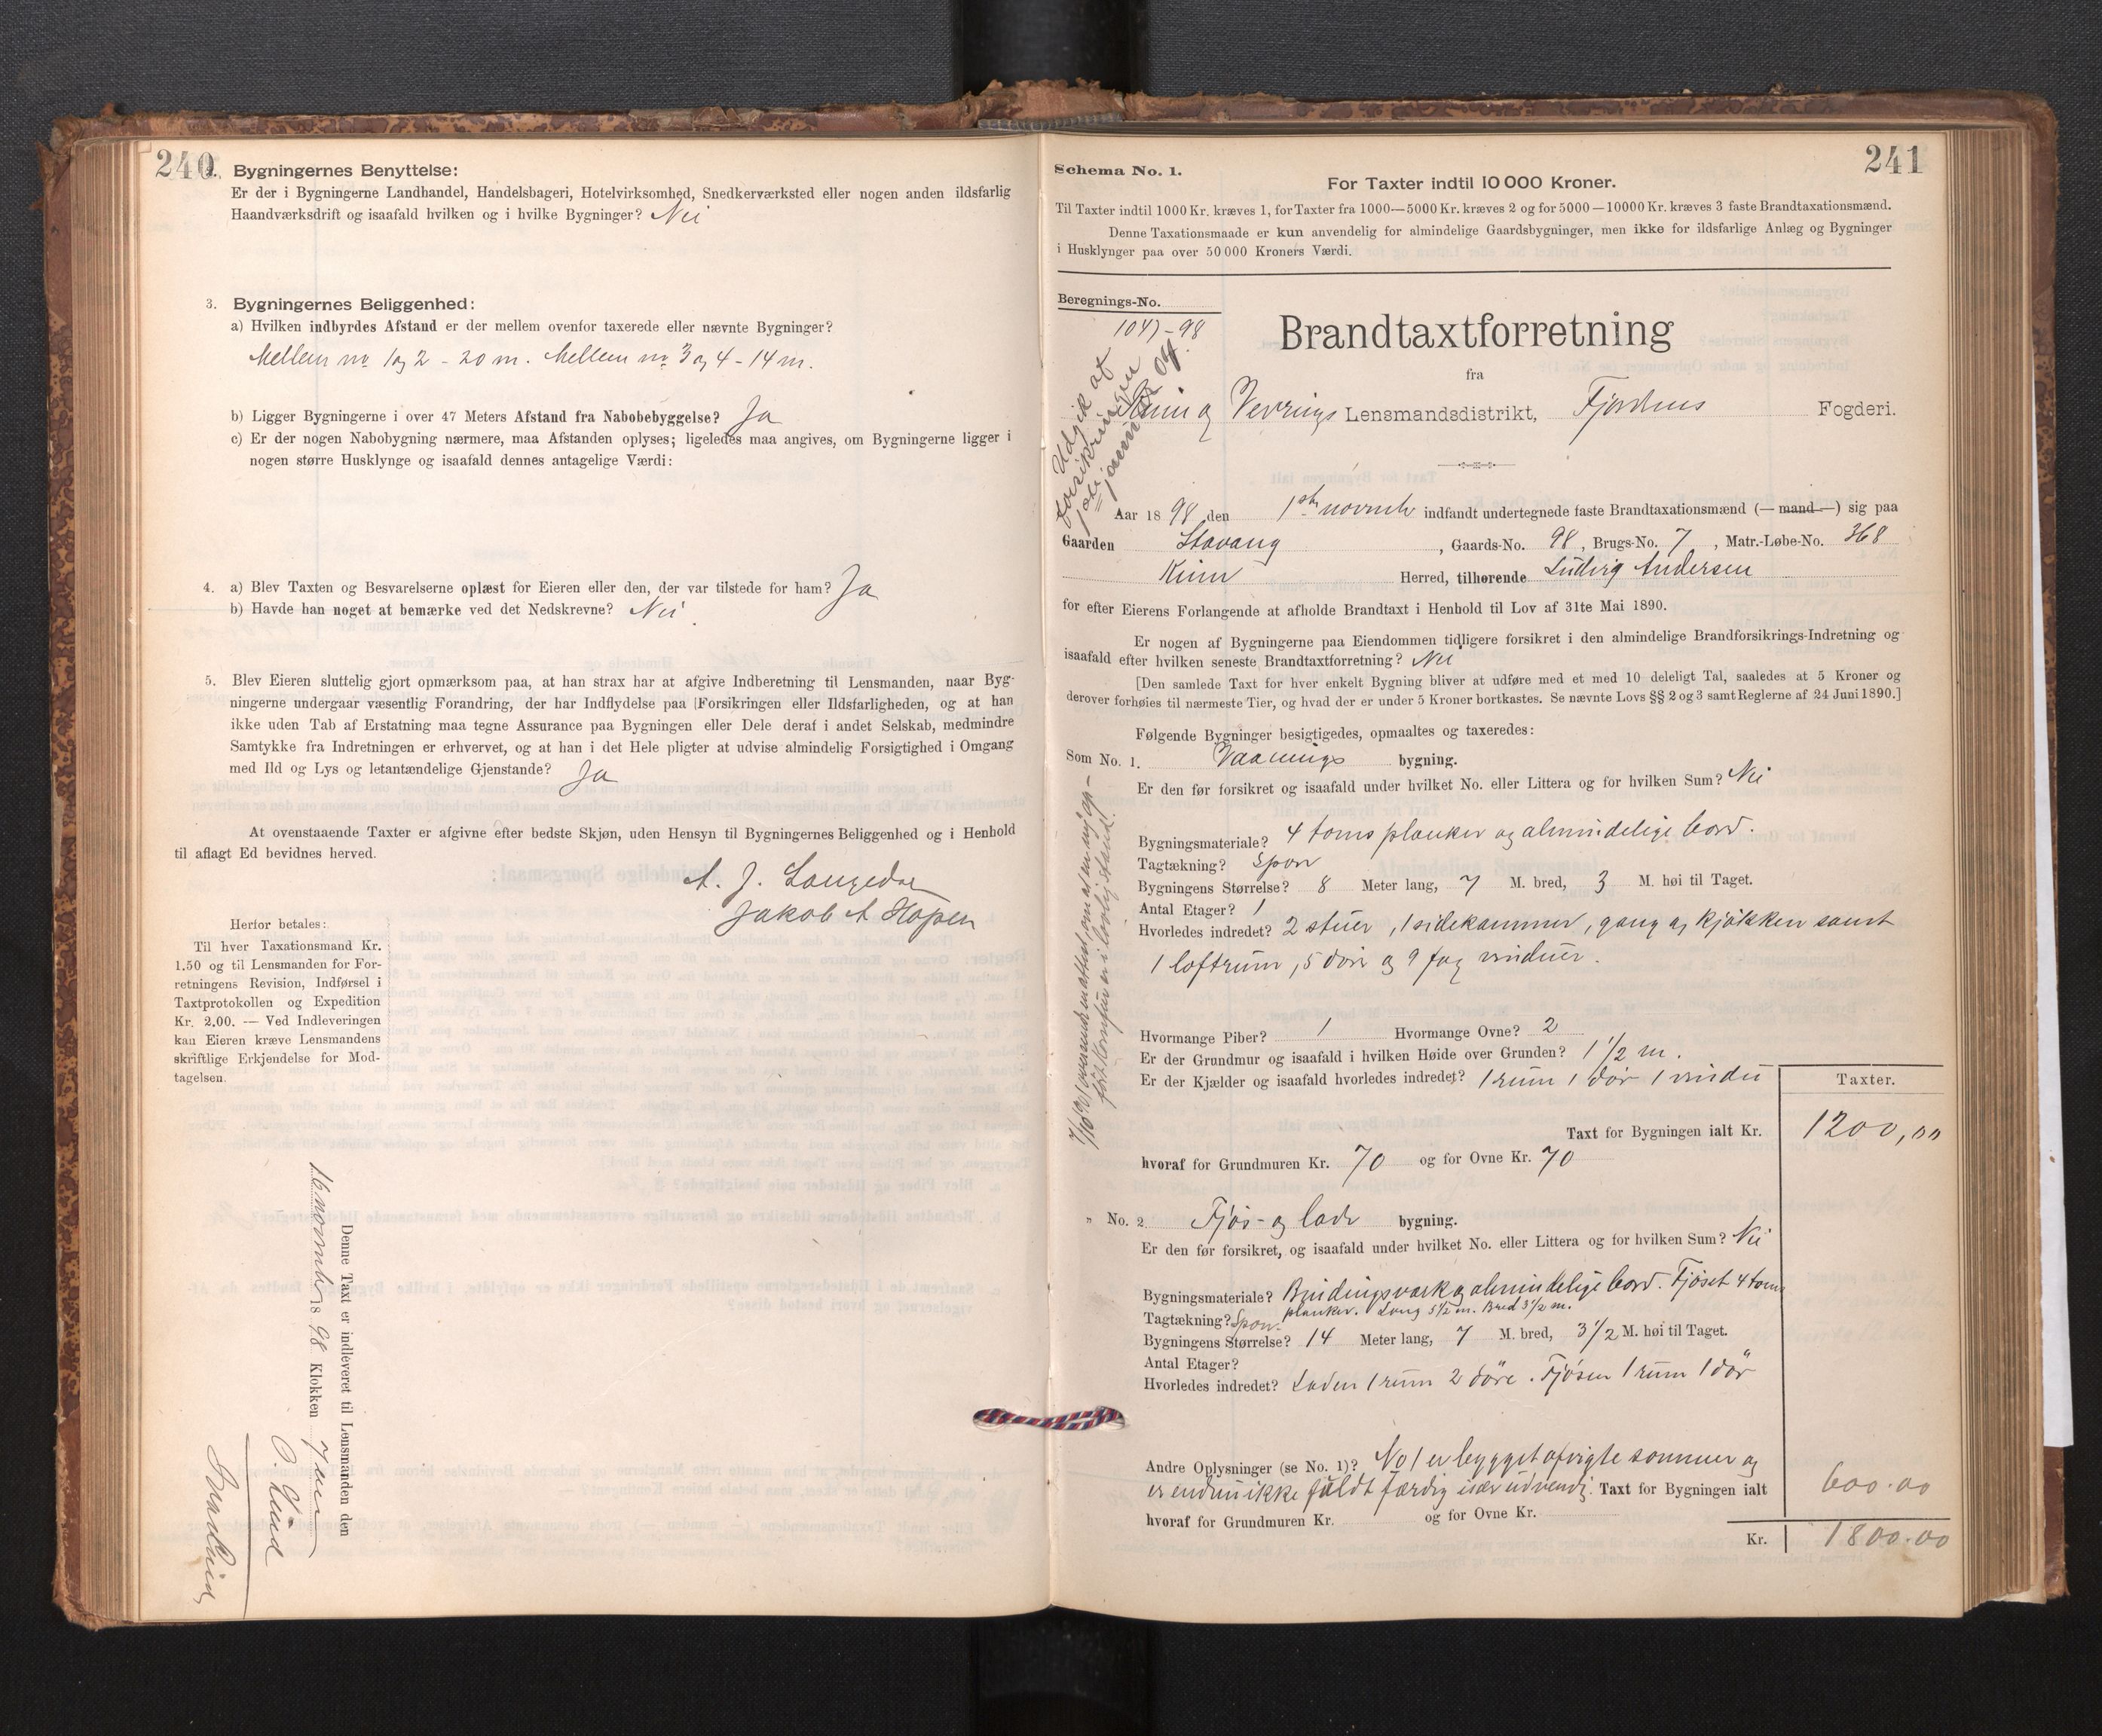 240
2. Bygningernes Benyttelse:
Er der i Bygningerne Landhandel, Handelsbageri, Hotelvirksomhed, Snedkerværksted eller nogen anden ildsfarlig
Haandværksdrift og isaafald hvilken og i hvilke Bygninger? Nei
3. Bygningernes Beliggenhed:
a) Hvilken indbyrdes Afstand er der mellem ovenfor taxerede eller nævnte Bygninger?
Mellem no 1 og 2 - 20 m. Mellem no 3 og 4 - 14 m.
b) Ligger Bygningerne i over 47 Meters Afstand fra Nabobebyggelse? Ja
c) Er der nogen Nabobygning nærmere, maa Afstanden oplyses; ligeledes maa angives, om Bygningerne ligger i
nogen større Husklynge og isaafald dennes antagelige Værdi:
4. a) Blev Taxten og Besvarelserne oplæst for Eieren eller den, der var tilstede for ham? Ja
b) Havde han noget at bemærke ved det Nedskrevne? Nei.
5. Blev Eieren sluttelig gjort opmærksom paa, at han strax har at afgive Indberetning til Lensmanden, naar Byg-
ningerne undergaar væsentlig Forandring, der har Indflydelse paa Forsikringen eller Ildsfarligheden, og at han
ikke uden Tab af Erstatning maa tegne Assurance paa Bygningen eller Dele deraf i andet Selskab, medmindre
Samtykke fra Indretningen er erhvervet, og at han i det Hele pligter at udvise almindelig Forsigtighed i Omgang
med Ild og Lys og letantændelige Gjenstande? Ja
At ovenstaaende Taxter er afgivne efter bedste Skjøn, uden Hensyn til Bygningernes Beliggenhed og i Henhold
til aflagt Ed bevidnes herved.
A. J. Langedal
Jakob A Hopen
Herfor betales:
Til hver Taxationsmand Kr.
1.50 og til Lensmanden for For-
retningens Revision, Indførsel i
Taxtprotokollen og Expedition
Kr. 2.00. — Ved Indleveringen
kan Eieren kræve Lensmandens
skriftlige Erkjendelse for Mod-
tagelsen.
Denne Taxt er indleveret til Lensmanden den
16 november 1898 Klokken 7 em
O. Lind
241
Schema No. 1.
For Taxter indtil 10 000 Kroner.
Til Taxter indtil 1000 Kr. kræves 1, for Taxter fra 1000—5000 Kr. kræves 2 og for 5000—10000 Kr. kræves 3 faste Brandtaxationsmænd.
Denne Taxationsmaade er kun anvendelig for almindelige Gaardsbygninger, men ikke for ildsfarlige Anlæg og Bygninger
i Husklynger paa over 50 000 Kroners Værdi.
Beregnings-No.
1047-98
Udgik af
forsikringen
Brandtaxtforretning
fra
Kinn og Vevrings Lensmandsdistrikt, Fjordens Fogderi.
Aar 1898 den 1ste novmbr indfandt undertegnede faste Brandtaxationsmænd (—mand—) sig paa
Gaarden Stavang, Gaards-No. 98, Brugs-No. 7, Matr.-Løbe-No. 368
Kinn Herred, tilhørende Ludvig Andersen
for efter Eierens Forlangende at afholde Brandtaxt i Henhold til Lov af 31te Mai 1890.
Er nogen af Bygningerne paa Eiendommen tidligere forsikret i den almindelige Brandforsikrings-Indretning og
isaafald efter hvilken seneste Brandtaxtforretning? Nei
[Den samlede Taxt for hver enkelt Bygning bliver at udføre med et med 10 deleligt Tal, saaledes at 5 Kroner og
derover forhøies til nærmeste Tier, og hvad der er under 5 Kroner bortkastes. Se nævnte Lovs §§ 2 og 3 samt Reglerne af 24 Juni 1890.]
Følgende Bygninger besigtigedes, opmaaltes og taxeredes:
Som No. 1. Vaanings bygning.
Er den før forsikret og isaafald under hvilket No. eller Littera og for hvilken Sum? Nei
Bygningsmateriale? 4 toms planker og almindelige bord.
Tagtækning? Spon
Bygningens Størrelse? 8 Meter lang, 7 M. bred, 3 M. høi til Taget.
Antal Etager? 1
Hvorledes indredet? 2 stuer, 1 sidekammer, gang og kjøkken samt
1 loftrum, 5 döre og 9 fag vinduer.
Hvormange Piber? 1 Hvormange Ovne? 2
Er der Grundmur og isaafald i hvilken Høide over Grunden? 1 1/2 m.
Er der Kjælder og isaafald hvorledes indredet? 1 rum 1 dör 1 vindu
Taxter.
Taxt for Bygningen ialt Kr. 1200,00
hvoraf for Grundmuren Kr. 70 og for Ovne Kr. 70
" No. 2 Fjös- og lade bygning.
Er den før forsikret, og isaafald under hvilket No. eller Littera og for hvilken Sum? Nei
Bygningsmateriale? Bindingsværk og almindelige bord. Fjöset 4 toms
planker. Lang 5 1/2 m. Bred 3 1/2 m.
Tagtækning? Spon.
Bygningens Størrelse? 14 Meter lang, 7 M. bred, 3 1/2 M. høi til Taget.
Antal Etager?
Hvorledes indredet? Laden 1 rum 2 döre. Fjösen 1 rum 1 dör
Andre Oplysninger (se No. 1)? No 1 er bygget afvigte sommer og
er endnu ikke fuldt færdig især udvendig. Taxt for Bygningen ialt 600.00
hvoraf for Grundmuren Kr. og for Ovne Kr.
Kr. 1800.00